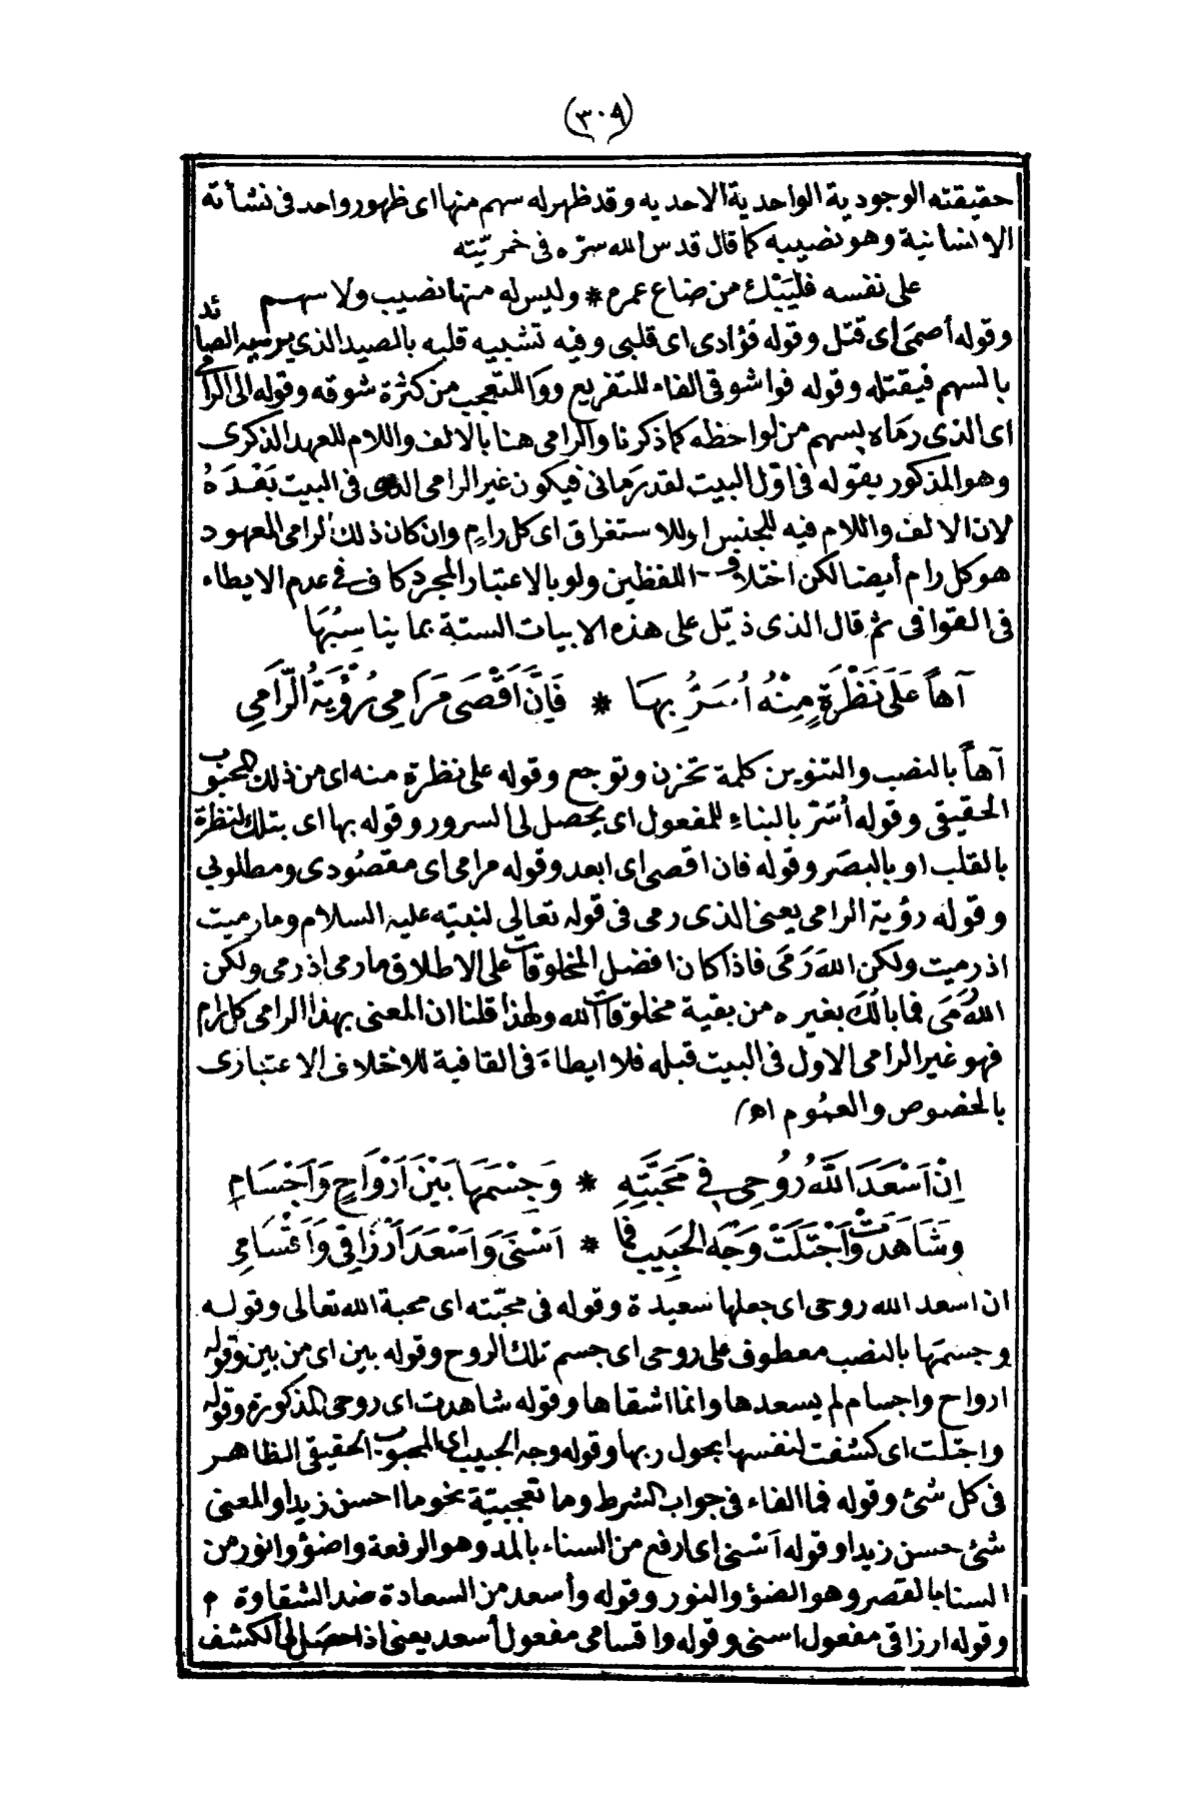 (٣٠٩)
حقيقته الوجودية الواحدية الاحديه وقد ظهر له سهم منها اى ظهور واحد فى نشأته
الانسانية وهو نصيبه كما قال قدس الله سرّه فى خمريّته
على نفسه فليَبْك من ضاع عمره * وليس له منها نصيب ولا سهم
وقوله أصمَى اى قتل وقوله فؤادى اى قلبى وفيه تشبيه قلبه بالصيد الذي يرميه الصائد
بالسهم فيقتله وقوله فواشوقى الفاء للتفريع ووا للتعجب من كثرة شوقه وقوله الى الرامى
اى الذى رمَاه بسهم من لواحظه كما ذكرنا والرامى هنا بالالف واللام للعهد الذكرى
وهو المذكور بقوله فى اوّل البيت لقد رَمانى فيكون غير الرامى الذى فى البيت بَعْدَهُ
لان الالف واللام فيه للجنس او للاستغراق اى كل رامٍ وان كان ذلك الرامى المعهود
هو كل رام أيضا لكن اختلاف اللفظين ولو بالاعتبار المجرد كاف فى عدم الايطاء
فى القوافى ثم قال الذى ذيّل على هذه الابيات الستة بما يناسِبُهَا
آهاً عَلَى نَظْرَةٍ مِنْهُ اُسَرُّ بِهَا * فَاِنَّ اَقْصَى مَرَامِى رُؤْيَةُ الرَّامِي
آهاً بالنصب والتنوين كلمة تحزن وتوجع وقوله على نظرة منه اى من ذلك المحبوب
الحقيقى وقوله أُسَرّ بالبناءِ للمفعول اى يحصل لى السرور وقوله بها اى بتلك النظرة
بالقلب او بالبصَر وقوله فان اقصى اى ابعد وقوله مرامى اى مقصُودى ومطلوبي
وقوله رؤية الرامى يعنى الذى رمى فى قوله تعالي لنبيّه عليه السلام وما رميت
اذ رميت ولكن اللهَ رَمَى فاذا كان افضل المخلوقات على الاطلاق ما رمى اذ رمى ولكن
اللهُ رَمَى فما بالُك بغيره من بقية مخلوقات الله ولهذا قلنا ان المعنى بهذا الرامى كل رام
فهو غير الرامى الاول فى البيت قبله فلا ايطاءَ فى القافية للاختلاف الاعتبارى
بالخصوص والعمُوم اهـ
اِنْ اَسْعَدَ اللّٰهُ رُوحِى فِى مَحَبَّتِهِ * وَجِسْمَهَا بَيْنَ اَرْوَاحٍ وَاَجْسَامِ
وَشَاهَدَتْ وَاجْتَلَتْ وَجْهَ الْحَبِيبِ فَمَا * اَسْنَى وَاَسْعَدَ اَرْزَاقِى وَاَقْسَامِى
ان اسعد الله روحى اى جعلها سعيدة وقوله فى محبّته اى محبة الله تعالى وقوله
وجسمَها بالنصب معطوف على روحى اى جسم تلك الروح وقوله بين اى من بين وقوله
ارواح واجسام لم يسعدها وانما اشقاها وقوله شاهدت اى روحى المذكورة وقوله
واجتلت اى كشفت لنفسها بحول ربها وقوله وجه الحبيب اى المحبوب الحقيقى الظاهر
فى كل شئ وقوله فما الفاء فى جواب الشرط وما تعجبيّة نحو ما احسن زيدا والمعنى
شئ حسن زيدا وقوله اَسْنى اى ارفع من السناء بالمد وهو الرفعة واضؤ وانور من
السنا بالقصر وهو الضؤ والنور وقوله وأسعد من السعادة ضد الشقاوة م
وقوله ارزاقى مفعول اسنى وقوله واقسامى مفعول أسعد يعنى اذا حصَل لى الكشف